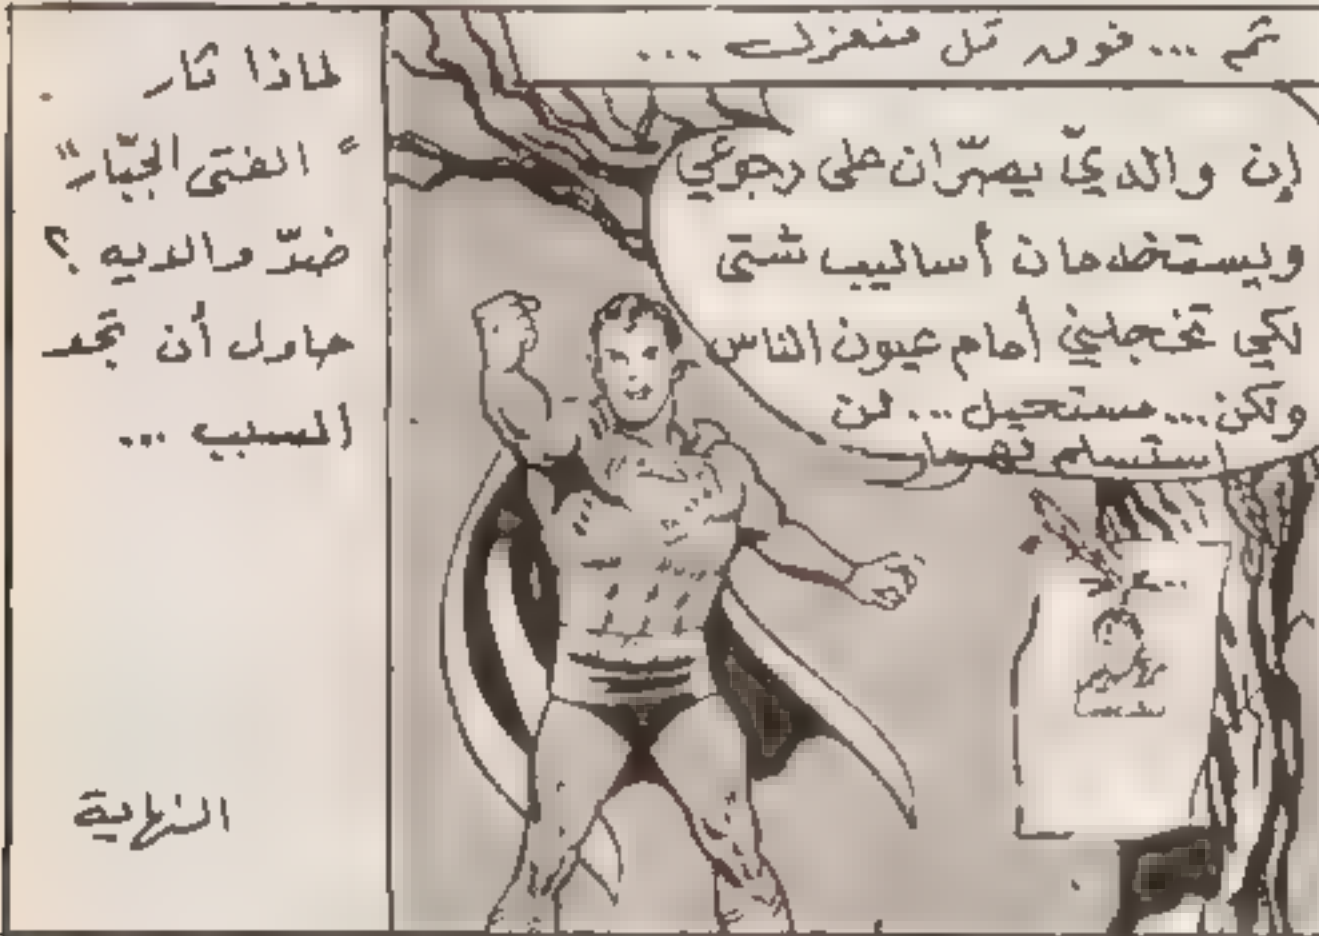 ثم ... فوق تل منعزل ...
إن والديّ يصرّان على رجوعي
ويستخدمان أساليب شتى
لكي تخجلني أمام عيون الناس
ولكن ... مستحيل ... لن
استسلم لهما
لماذا ثار
"الفتى الجبّار"
ضدّ والديه ؟
حاول أن تجد
السبب ...
النهاية